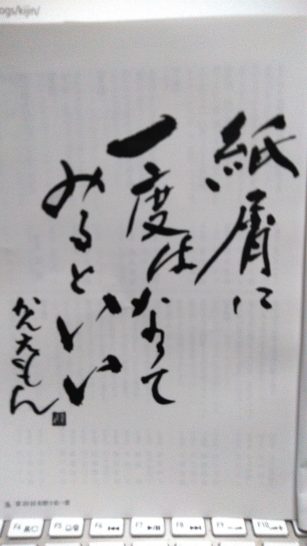 紙屑に
一度はなって
みるといい
かん太もん
ogs/kijn/
F4
F5
F6
F7
F8
F9
F10